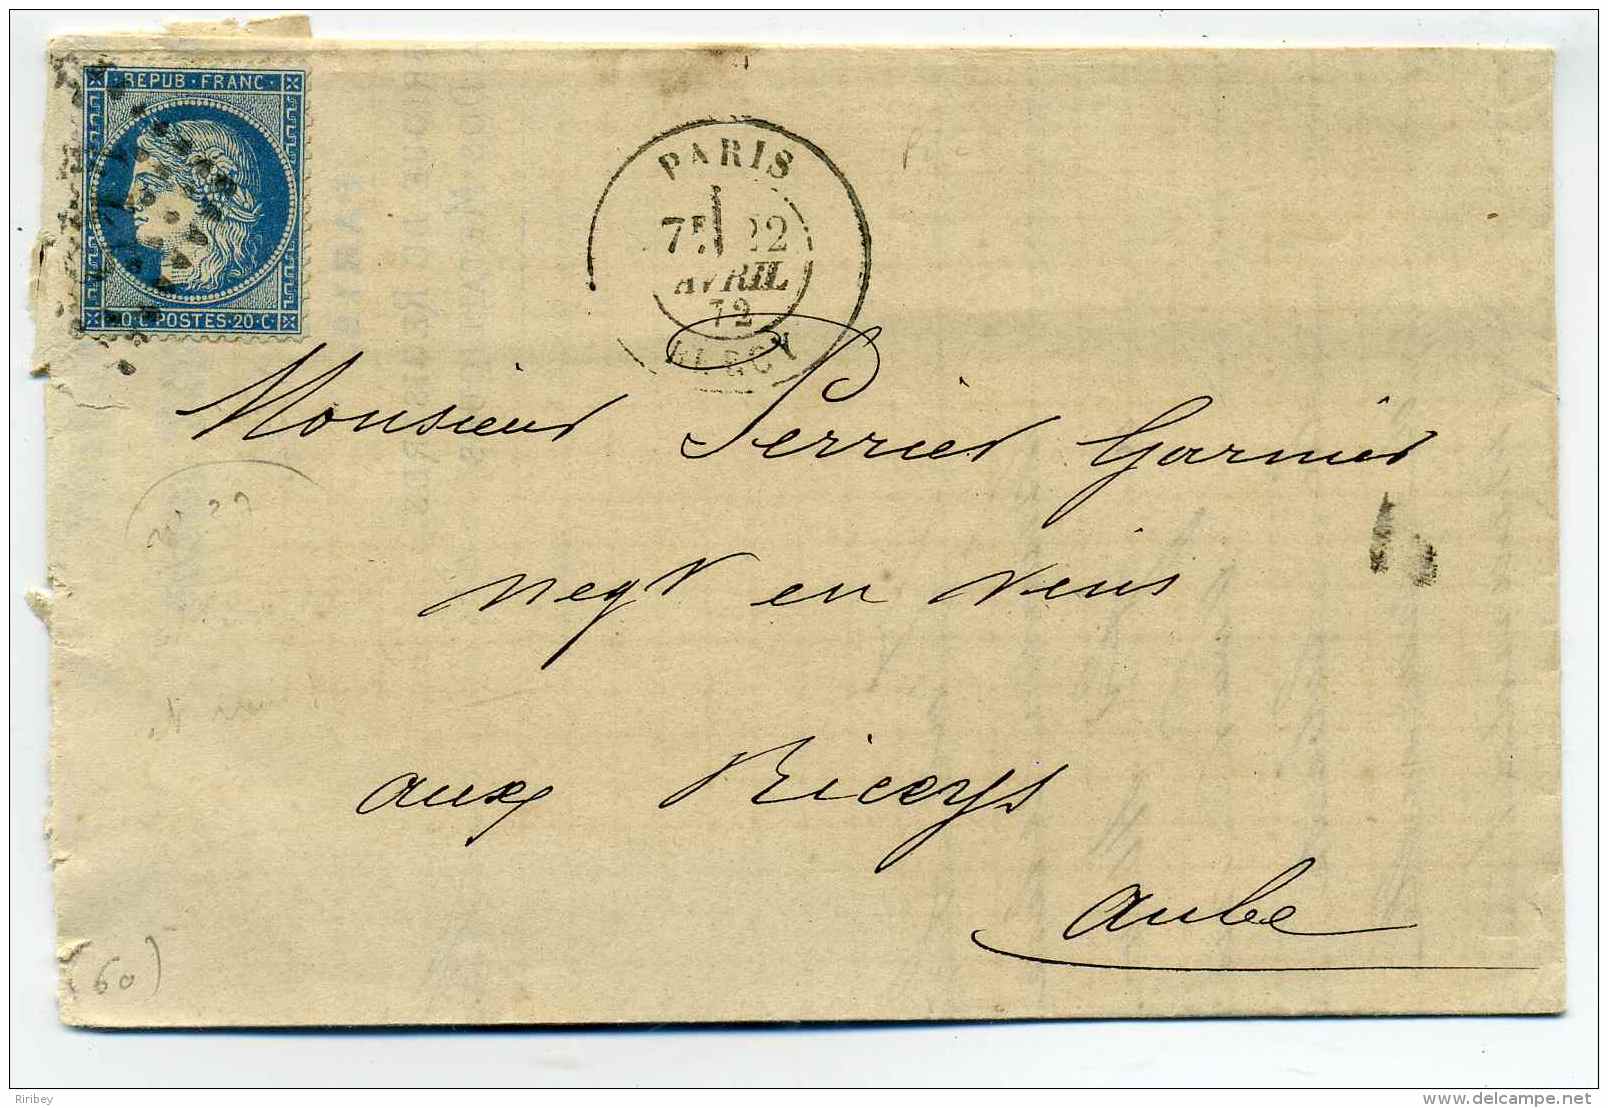 REPUB·FRANC·
20·C·POSTES·20·C·
PARIS
22
AVRIL
72
BERCY
Monsieur Perrier Garnier
negt en vins
aux Riceys
Aube
(60)
Riribey